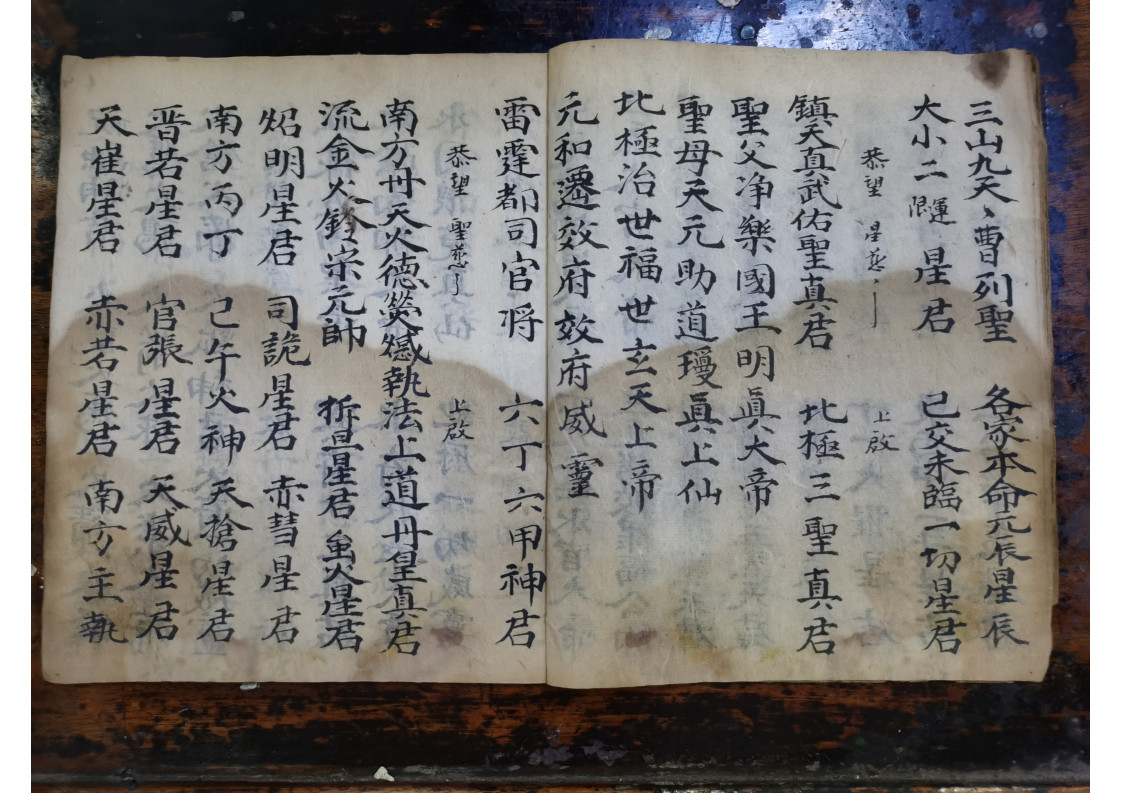 三山九天、曹列聖 各家本命元辰星辰
大小二運限星君 已交未臨一切星君
恭望 星慈 上啟
鎮天真武佑聖真君 北極三聖真君
聖父净樂國王明真大帝
聖母天元助道瓊真上仙
北極治世福世玄天上帝
元和遷效府效府威靈
雷霆都司官將 六丁六甲神君
恭望 聖慈 上啟
南方丹天火德熒惑執法上道丹皇真君
流金火鈴宋元帥 拆旦星君 蚩火星君
炤明星君 司詭星君 赤彗星君
南方丙丁 己午火神 天搶星君
晋若星君 官張星君 天威星君
天崔星君 赤若星君 南方主執